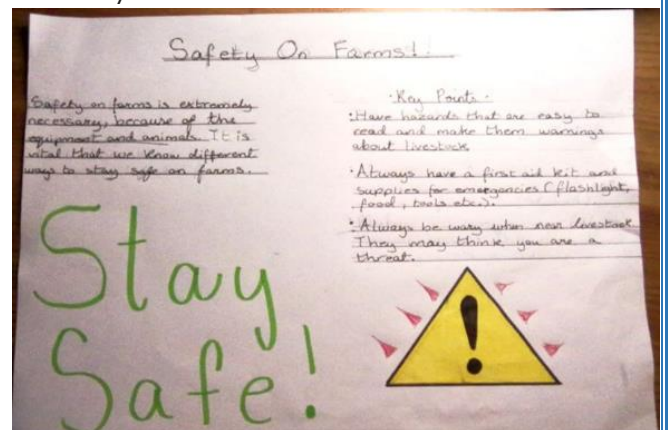 Safety On Farms!
Safety on farms is extremely
necessary, because of the
equipment and animals. It is
vital that we know different
ways to stay safe on farms.
Stay
Safe!
· Key Points ·
· Have hazards that are easy to
read and make them warnings
about livestock
· Always have a first aid kit and
supplies for emergencies (flashlight,
food, tools etc.).
· Always be wary when near livestock
They may think you are a
threat.
!